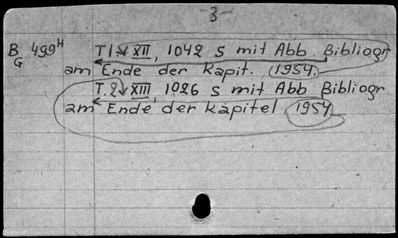 3-
B 499H T1 XII, 1042 s mit Abb. Bibliogr
G am Ende der Kapit. (1954.
T.2 XIII, 1026 s mit Abb Bibliogr
am Ende der Kapitel 1954